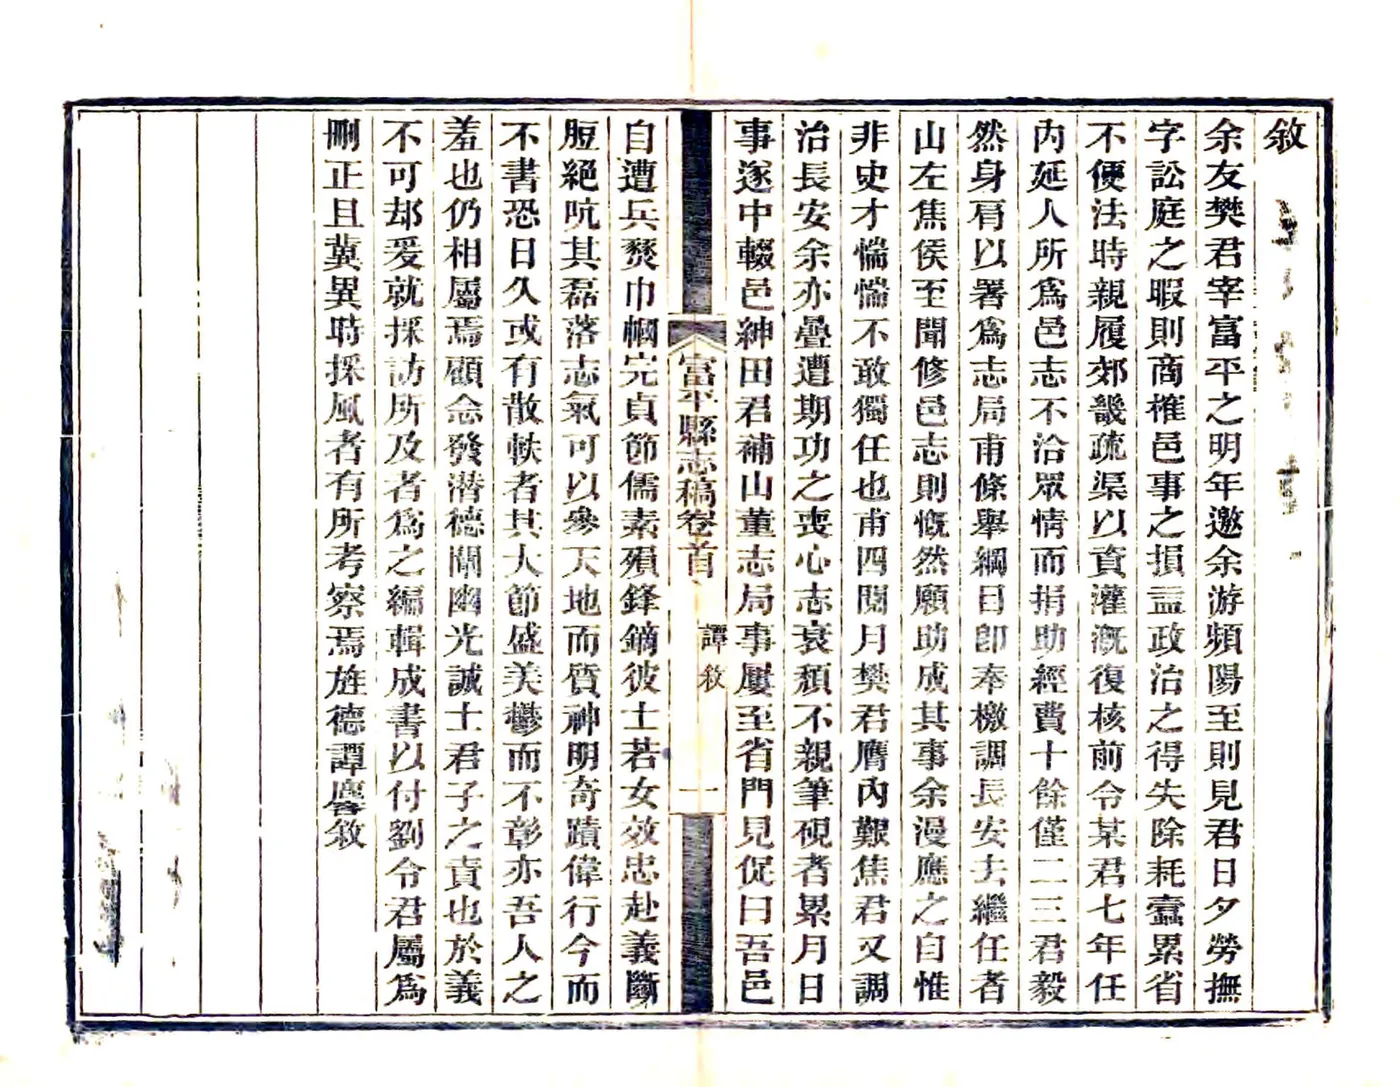 敘
余友樊君宰富平之明年邀余游頻陽至則見君日夕勞撫
字訟庭之暇則商榷邑事之損益政治之得失除耗蠹累省
不便法時親履郊畿疏渠以資灌漑復核前令某君七年任
內延人所爲邑志不洽眾情而捐助經費十餘僅二三君毅
然身肩以署爲志局甫條舉綱目卽奉檄調長安去繼任者
山左焦侯至聞修邑志則慨然願助成其事余漫應之自惟
非史才惴惴不敢獨任也甫四閱月樊君膺內艱焦君又調
治長安余亦疊遭期功之喪心志衰頹不親筆硯者累月日
事遂中輟邑紳田君補山董志局事屢至省門見促曰吾邑
富平縣志稿卷首
譚敘
一
自遭兵燹巾幗完貞節儒素殞鋒鏑彼士若女效忠赴義斷
脰絕吭其磊落志氣可以參天地而質神明奇蹟偉行今而
不書恐日久或有散軼者其大節盛美鬱而不彰亦吾人之
羞也仍相屬焉顧念發潛德闡幽光誠士君子之責也於義
不可却爰就採訪所及者爲之編輯成書以付劉令君屬爲
刪正且冀異時採風者有所考察焉旌德譚麐敘